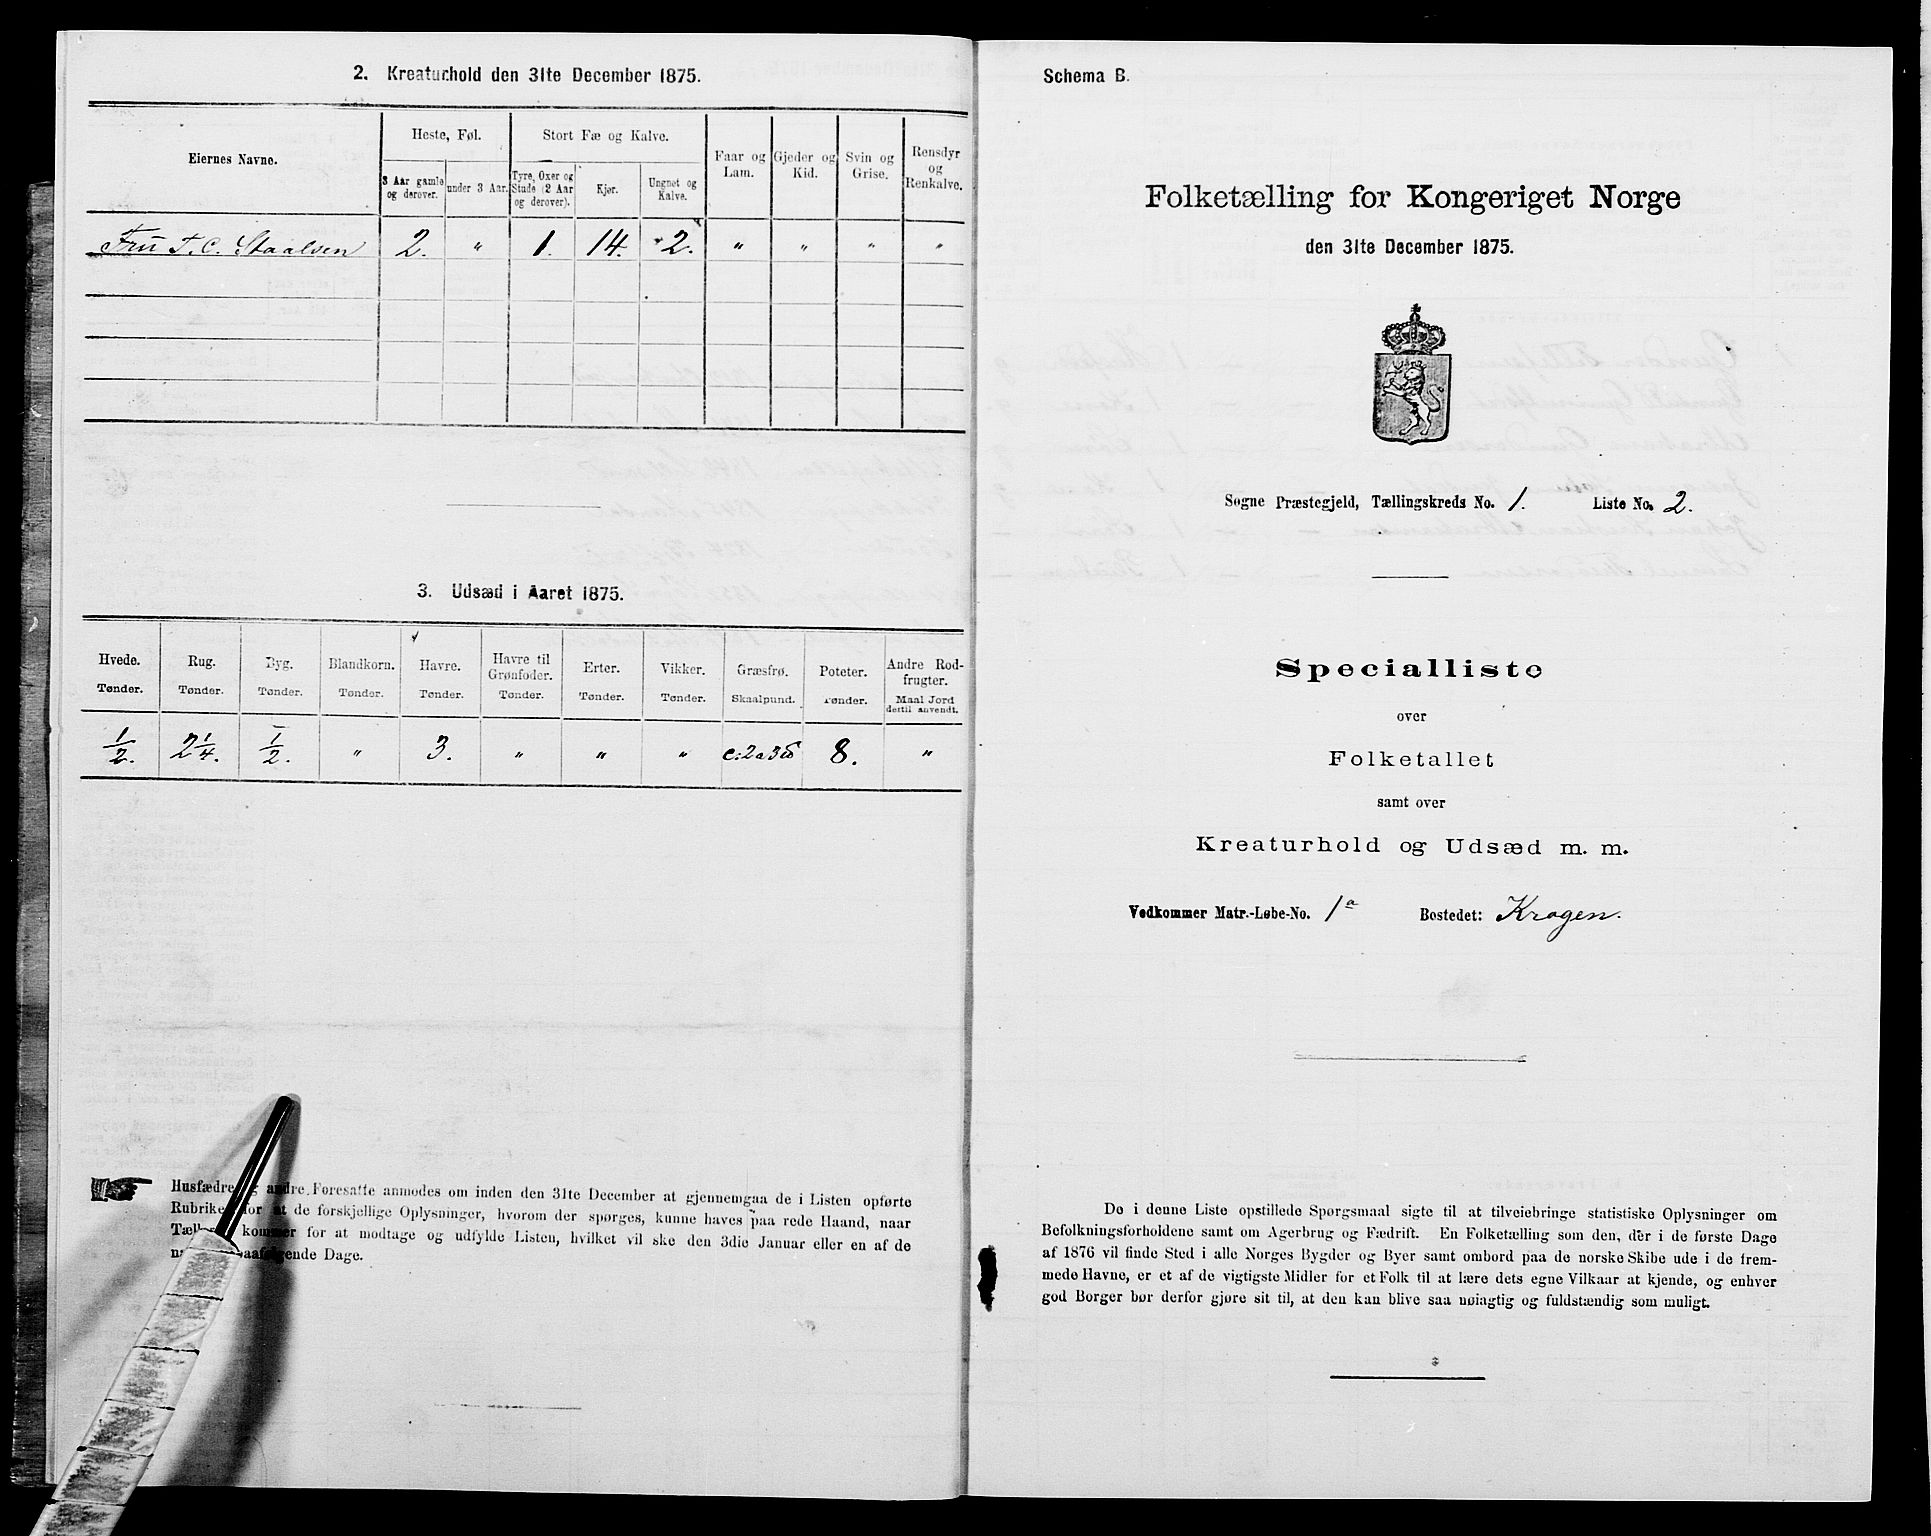 2. Kreaturhold den 31te December 1875.
Eiernes Navne.
Heste, Føl.
3 Aar gamle og derover.
under 3 Aar.
Stort Fæ og Kalve.
Tyre, Oxer og Stude (2 Aar og derover).
Kjør.
Ungnet og Kalve.
Faar og Lam.
Gjeder og Kid.
Svin og Grise.
Rensdyr og Renkalve.
Fru T. C. Staalsen 2. " 1. 14. 2. " " " "
3. Udsæd i Aaret 1875.
Hvede. Rug. Byg. Blandkorn. Havre. Havre til Grønfoder. Erter. Vikker. Græsfrø. Poteter. Andre Rodfrugter.
Tønder. Tønder. Tønder. Tønder. Tønder. Tønder. Tønder. Tønder. Skaalpund. Tønder. Maal Jord dertil anvendt.
1/2. 2 1/4. 1/2. " 3. " " " c: 2 a 3 8. "
Husfædre andre Foresatte anmodes om inden den 31te December at gjennemgaa de i Listen opførte
for at de forskjellige Oplysninger, hvorom der spørges, kunne haves paa rede Haand, naar
kommer for at modtage og udfylde Listen, hvilket vil ske den 3die Januar eller en af de
paafølgende Dage.
Schema B.
Folketælling for Kongeriget Norge
den 31te December 1875.
Søgne Præstegjeld, Tællingskreds No. 1. Liste No. 2.
Specialliste
over
Folketallet
samt over
Kreaturhold og Udsæd m. m.
Vedkommer Matr.-Løbe-No. 1a Bostedet: Kragen.
De i denne Liste opstillede Spørgsmaal sigte til at tilveiebringe statistiske Oplysninger om
Befolkningsforholdene samt om Agerbrug og Fædrift. En Folketælling som den, der i de første Dage
af 1876 vil finde Sted i alle Norges Bygder og Byer samt ombord paa de norske Skibe ude i de frem-
mede Havne, er et af de vigtigste Midler for et Folk til at lære dets egne Vilkaar at kjende, og enhver
god Borger bør derfor gjøre sit til, at den kan blive saa nøiagtig og fuldstændig som muligt.